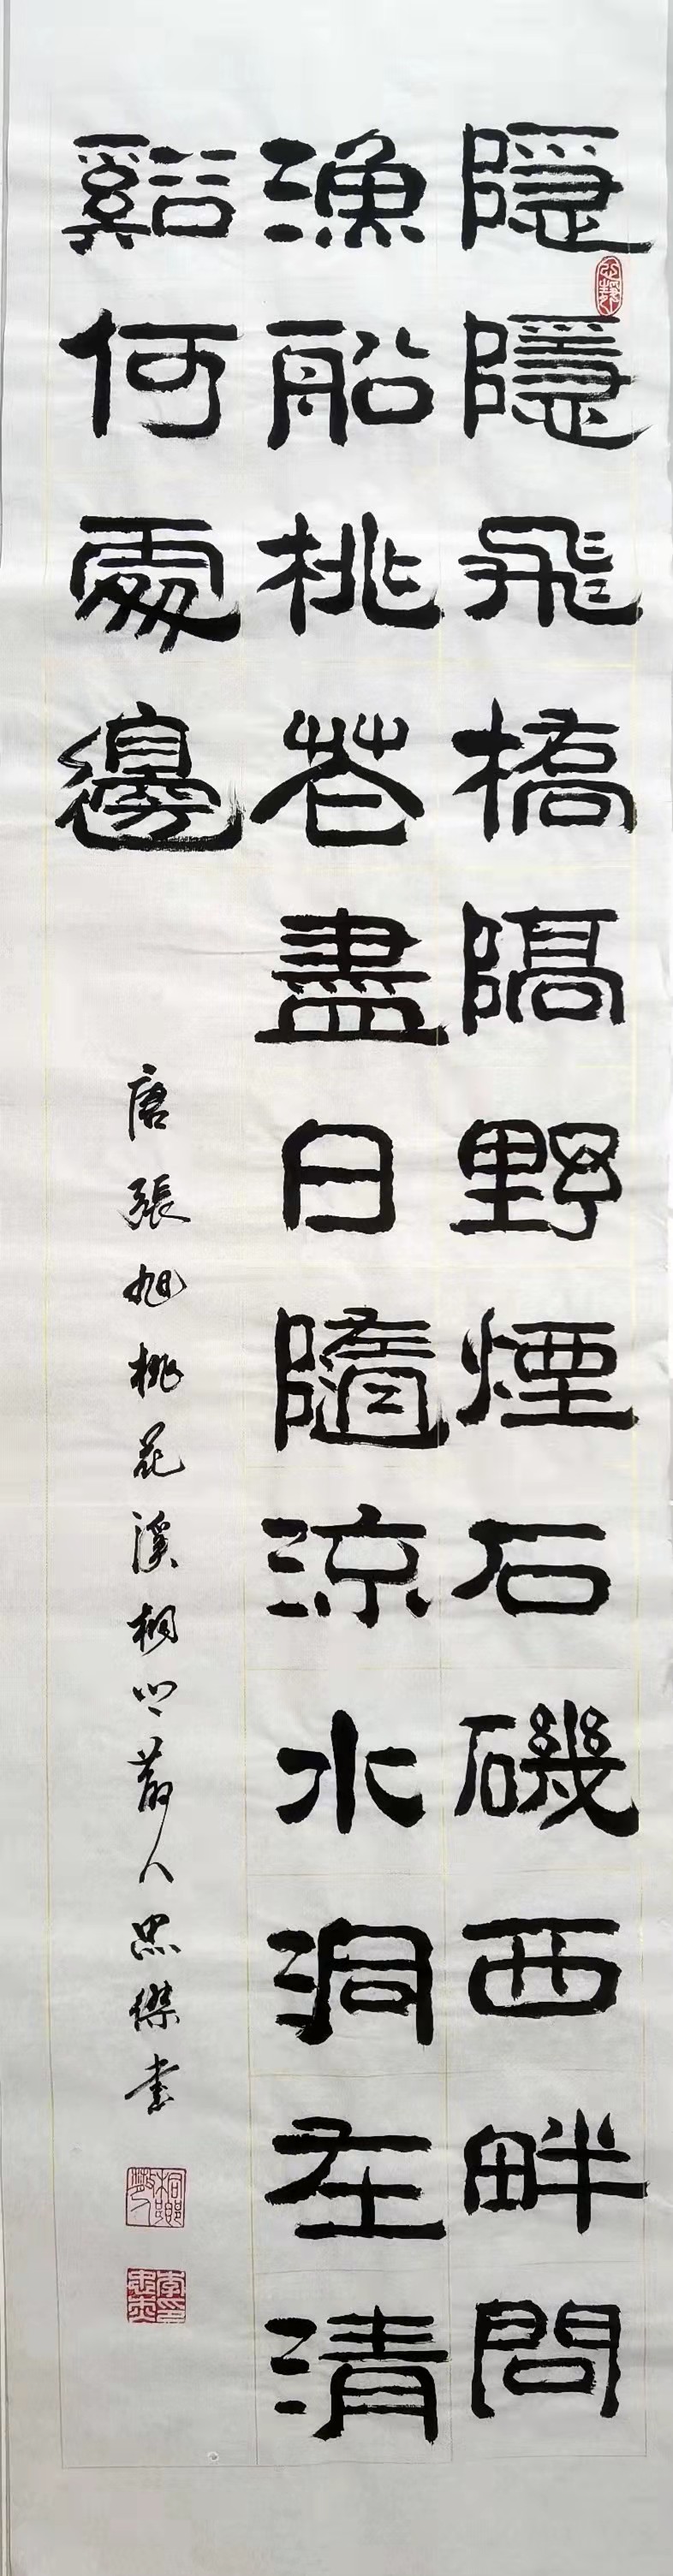 隱隱飛橋隔野煙石磯西畔問
漁船桃花盡日隨流水洞在清
谿何處邊
唐張旭桃花溪桐散人忠傑書